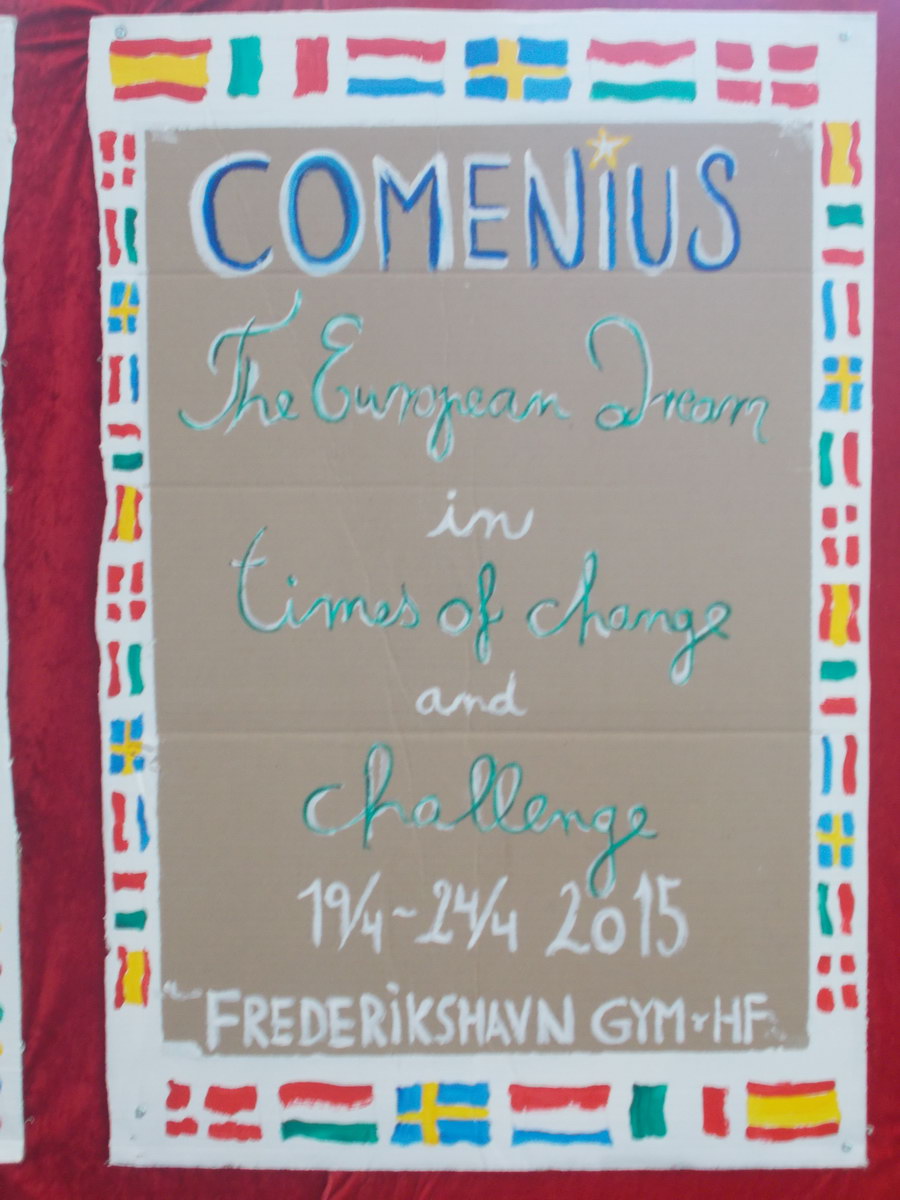 COMENiUS
The European Dream
in
times of change
and
challenge
19/4-24/4 2015
FREDERiKSHAVN GYM+HF